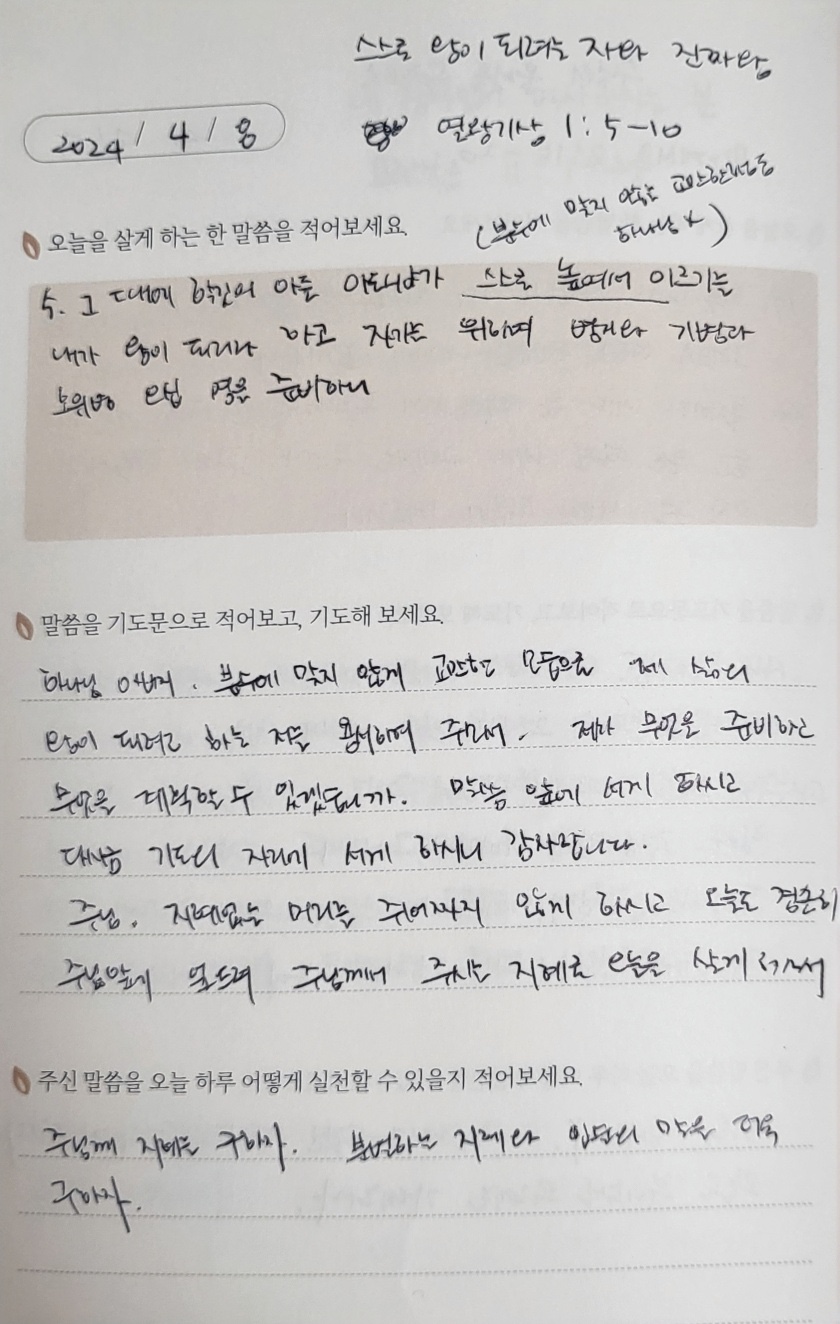 스스로 왕이 되려는 자와 진짜 왕
2024 / 4 / 8
열왕기상 1 : 5-10
(분수에 맞지 않는 교만한
하나님 X)
오늘을 살게 하는 한 말씀을 적어보세요.
5. 그 때에 학깃의 아들 아도니야가 스스로 높여서 이르기를
내가 왕이 되리라 하고 자기를 위하여 병거와 기병과
호위병 오십 명을 준비하니
말씀을 기도문으로 적어보고, 기도해 보세요.
하나님 아버지. 분수에 맞지 않게 교만한 모습으로 제 삶의
왕이 되려고 하는 저를 용서하여 주소서. 제가 무엇을 준비하고
무엇을 계획할 수 있겠습니까. 말씀 앞에 서게 하시고
기도의 자리에 서게 하시니 감사합니다.
주님. 지혜없는 머리를 쥐어짜지 않게 하시고 오늘도 겸손히
주님앞에 엎드려 주님께서 주시는 지혜로 오늘을 살게 하소서
주신 말씀을 오늘 하루 어떻게 실천할 수 있을지 적어보세요.
주님께 지혜를 구하자. 분별하는 지혜와 입술의 말을 더욱
구하자.